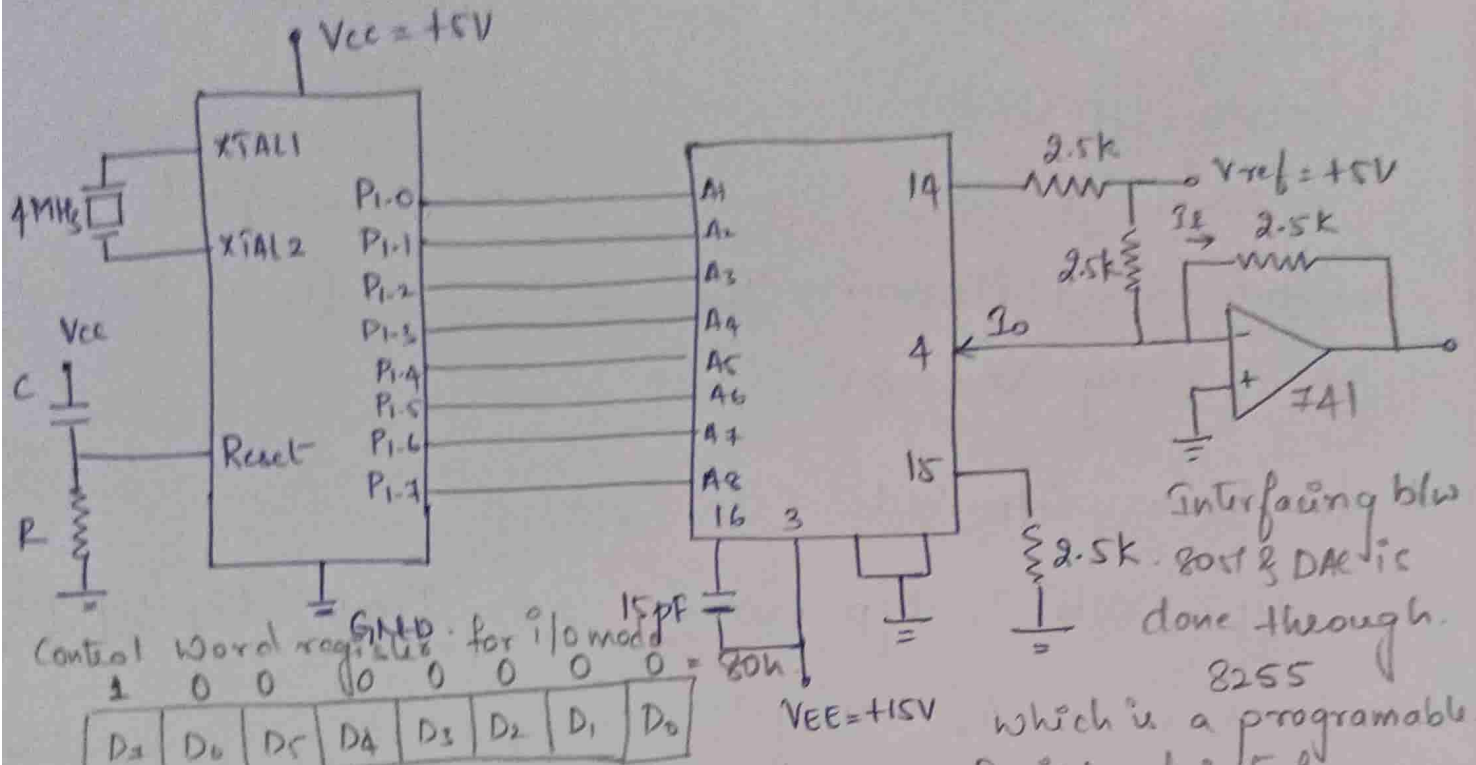 Vcc = +5V
XTAL1
4MHz
XTAL2
P1.0
P1.1
P1.2
P1.3
P1.4
P1.5
P1.6
P1.7
Vcc
C
R
Reset
GND
A1
A2
A3
A4
A5
A6
A7
A8
16 3
14
4
15
2.5k
Vref = +5V
2.5k
If
2.5k
Io
-
+
741
2.5k
15pF
VEE = +15V
Interfacing b/w
8051 & DAC is
done through
8255
which is a programable
Control Word register for i/o mode
1 0 0 0 0 0 0 0 = 80h
D7 D6 D5 D4 D3 D2 D1 D0